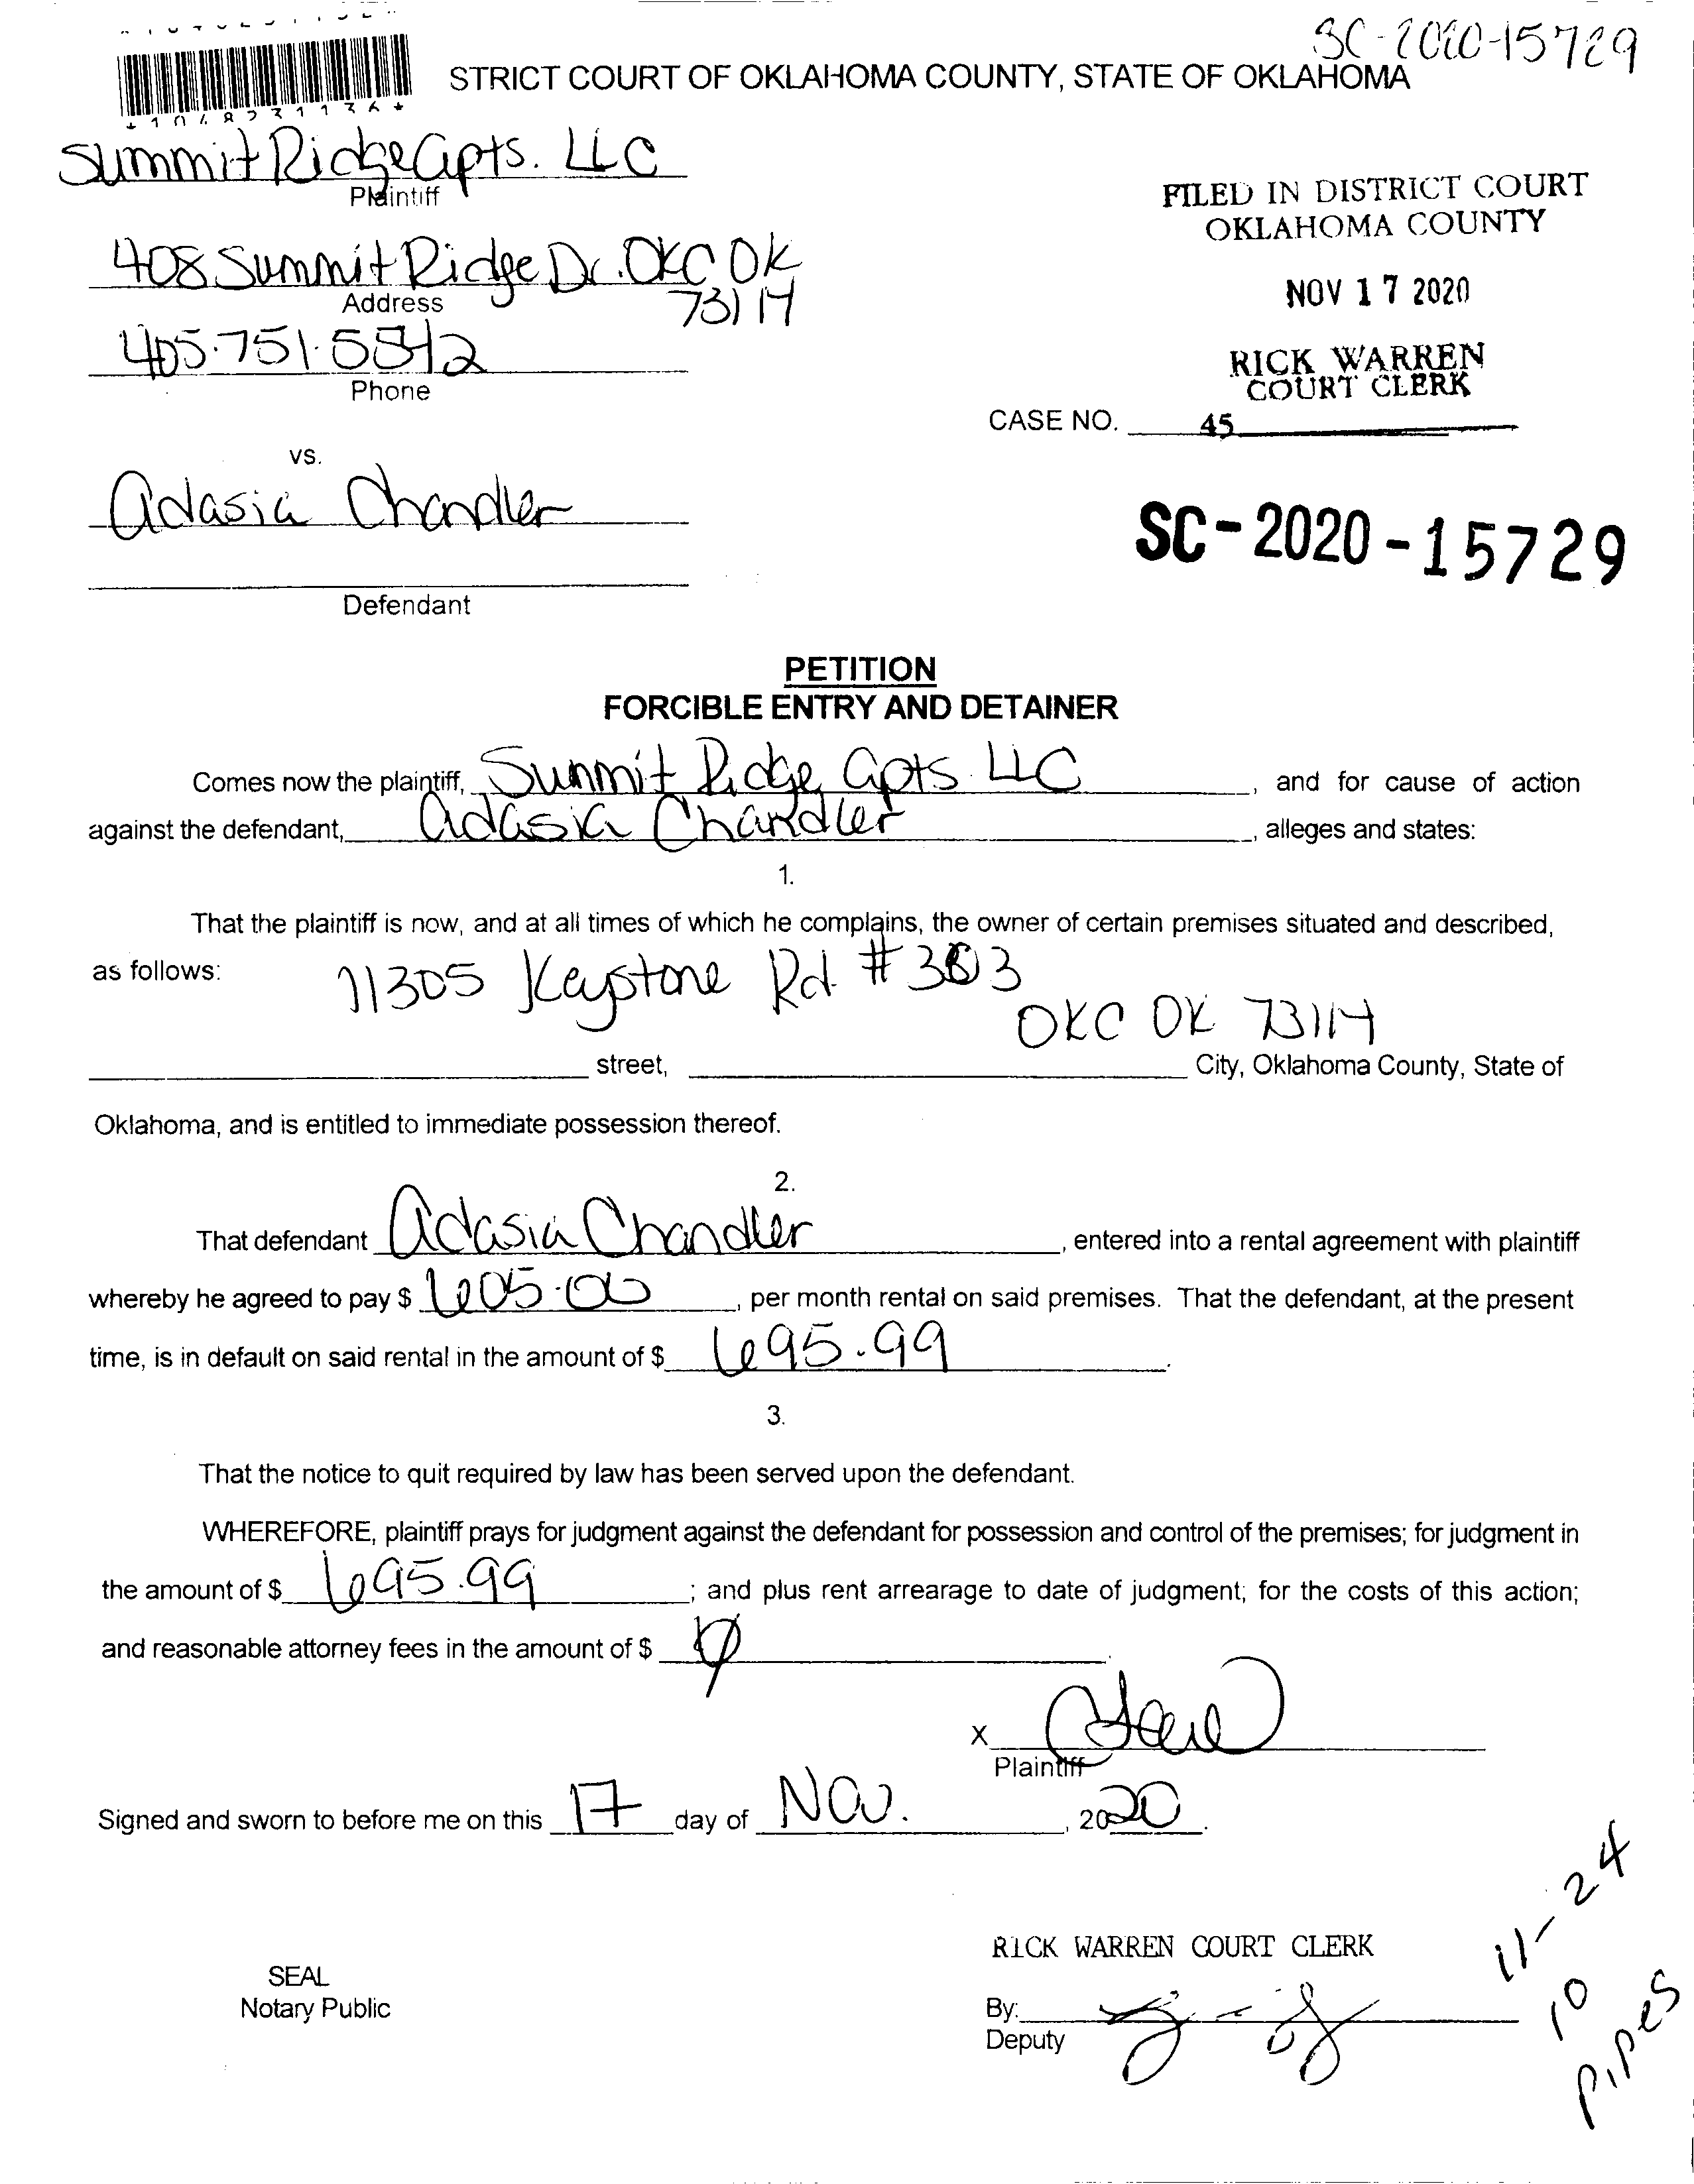 SC-2020-15729
STRICT COURT OF OKLAHOMA COUNTY, STATE OF OKLAHOMA
Summit Ridge Apts. LLC
Plaintiff
FILED IN DISTRICT COURT
OKLAHOMA COUNTY
408 Summit Ridge Dr. OKC OK
73114
Address
NOV 17 2020
405.751.5542
Phone
RICK WARREN
COURT CLERK
CASE NO. 45
vs.
Adasia Chandler
SC-2020-15729
Defendant
PETITION
FORCIBLE ENTRY AND DETAINER
Comes now the plaintiff, Summit Ridge Apts LLC, and for cause of action
against the defendant, Adasia Chandler, alleges and states:
1.
That the plaintiff is now, and at all times of which he complains, the owner of certain premises situated and described,
as follows: 11305 Keystone Rd
OKC OK 73114
street, City, Oklahoma County, State of
Oklahoma, and is entitled to immediate possession thereof.
2.
That defendant Adasia Chandler, entered into a rental agreement with plaintiff
whereby he agreed to pay $ 605.00, per month rental on said premises. That the defendant, at the present
time, is in default on said rental in the amount of $ 695.99.
3.
That the notice to quit required by law has been served upon the defendant.
WHEREFORE, plaintiff prays for judgment against the defendant for possession and control of the premises; for judgment in
the amount of $ 695.99; and plus rent arrearage to date of judgment; for the costs of this action;
and reasonable attorney fees in the amount of $ .
X
Plaintiff
Signed and sworn to before me on this 17 day of Nov., 2020.
RICK WARREN COURT CLERK
SEAL
Notary Public
By:
Deputy
11-24
10
Pipes